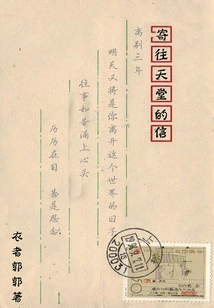 寄往天堂的信
离别三年
明天又将是你离开这个世界的日子
往事如昔涌上心头
历历在目 尽是思念
衣者郭郭著
上海